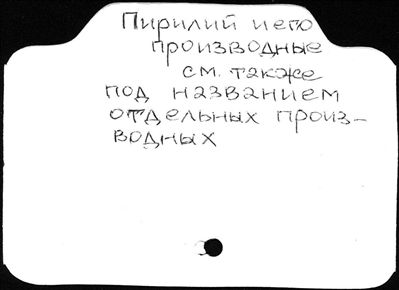 Пирилий и его
производные
см. также
под названием
отдельных произ-
водных